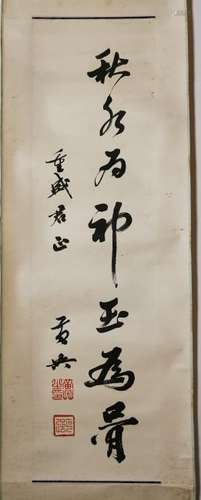 秋水為神玉為骨
重威君正
黃興